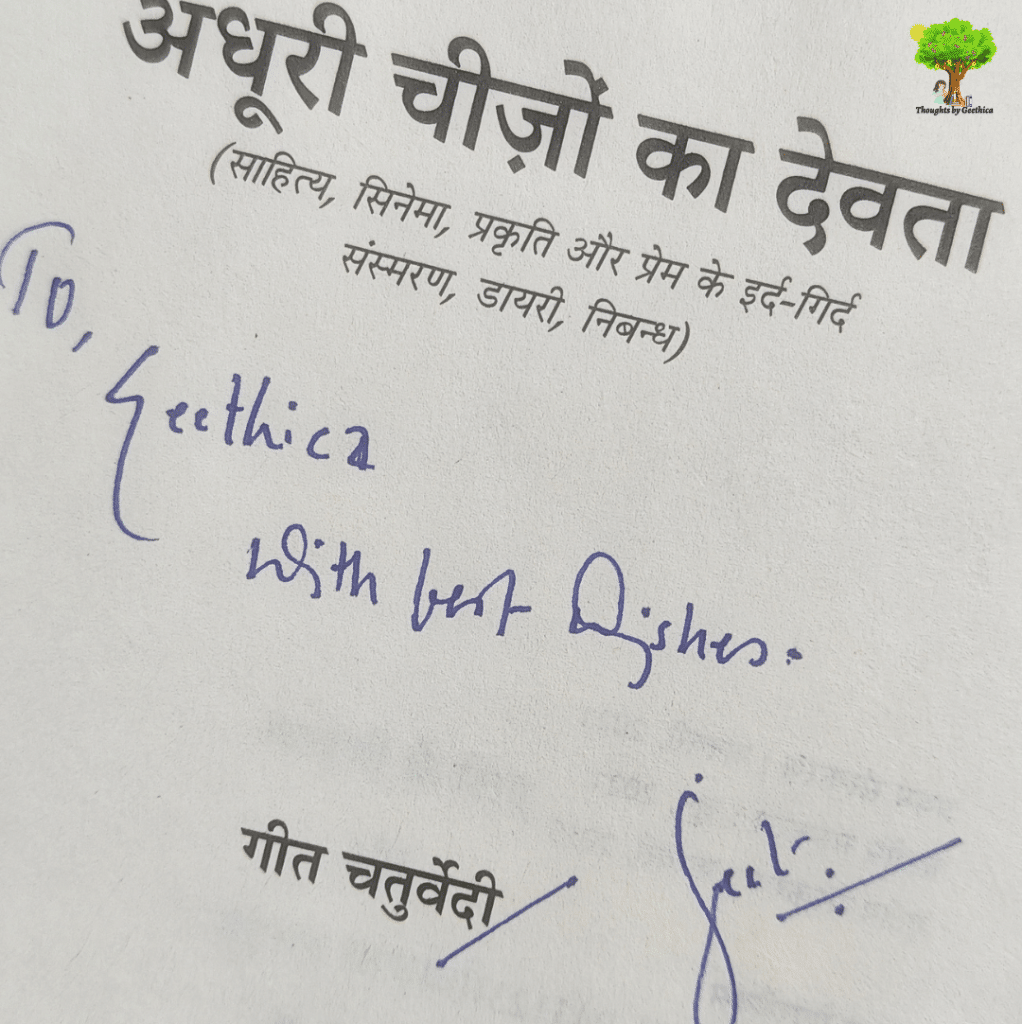 अधूरी चीज़ों का देवता
(साहित्य, सिनेमा, प्रकृति और प्रेम के इर्द-गिर्द
संस्मरण, डायरी, निबन्ध)
To,
Geethica
with best wishes.
गीत चतुर्वेदी
Geet
Thoughts by Geethica